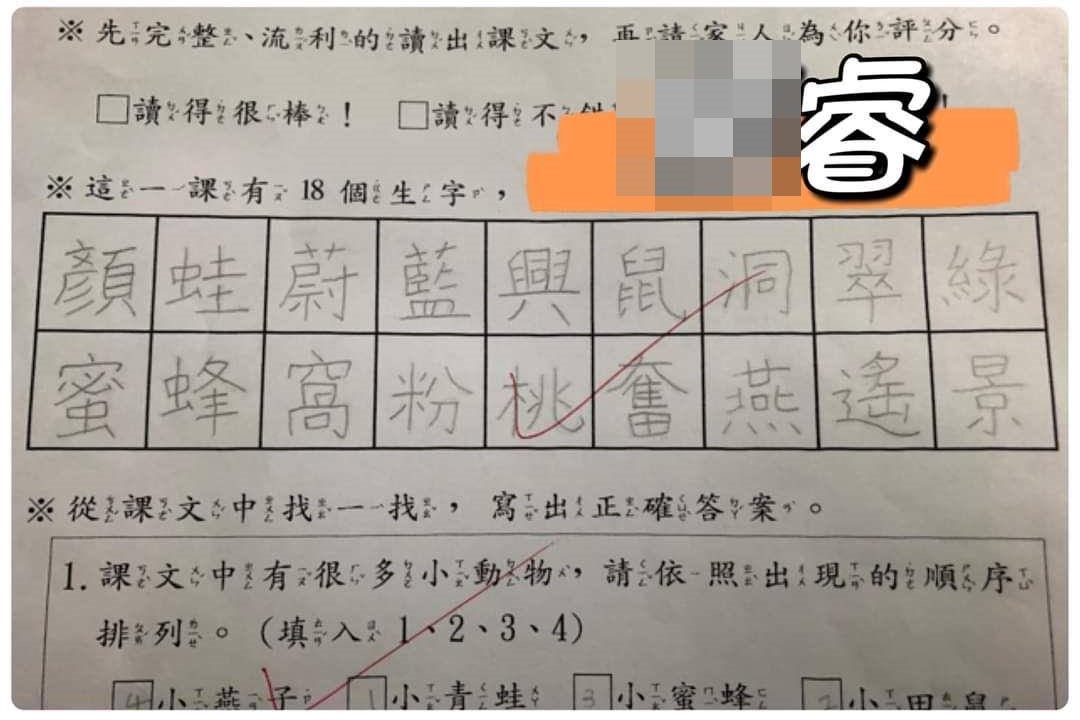 ※ 先完整、流利的讀出課文，再請家人為你評分。
□讀得很棒！ □讀得不錯 ！
睿
※ 這一課有 18 個生字，
顏 蛙 蔚 藍 興 鼠 洞 翠 綠
蜜 蜂 窩 粉 桃 奮 燕 遙 景
※ 從課文中找一找，寫出正確答案。
1. 課文中有很多小動物，請依照出現的順序
排列。（填入 1、2、3、4）
4 小燕子 1 小青蛙 3 小蜜蜂 2 小田鼠